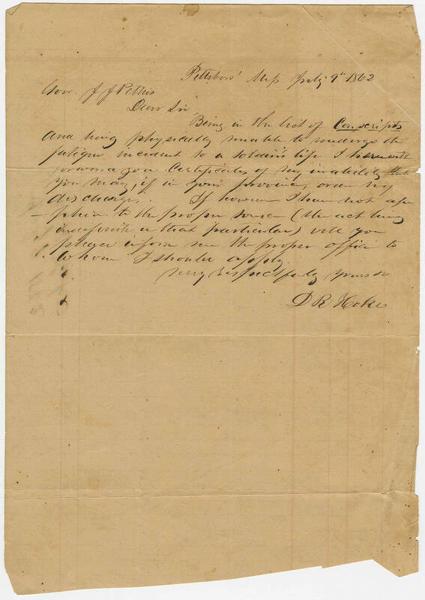 Pittsboro' Miss July 9th 1862
Gov. J J Pettus
Dear Sir
Being in the list of Conscripts
and being physically unable to undergo the
fatigue incident to a soldiers life I herewith
forward you Certificates of my invalidity that
you may, if in your province, order my
discharge. If however I have not ap
plied to the proper source (the act being
indefinite in that particular) will you
please inform me the proper office to
whom I should apply.
Very respectfully yours
D R Hoke